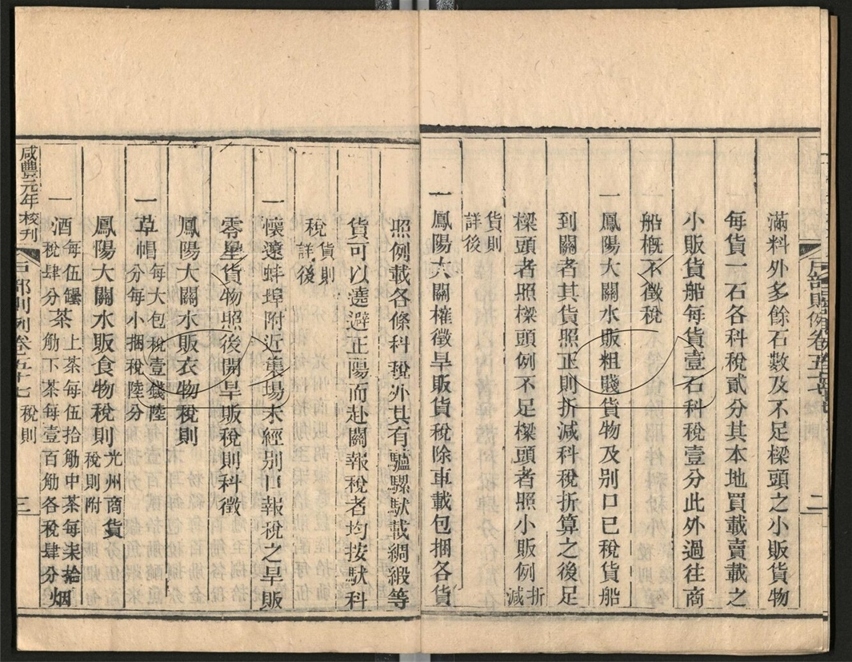 滿料外多餘石數及不足樑頭之小販貨物
每貨一石各科稅貳分其本地買載賣載之
小販貨船每貨壹石科稅壹分此外過往商
船概不徵稅
一鳳陽大關水販粗賤貨物及別口已稅貨船
到關者其貨照正則折減科稅折算之後足
樑頭者照樑頭例不足樑頭者照小販例折減
貨則詳後
一鳳陽大關榷徵旱販貨稅除車載包捆各貨
照例載各條科稅外其有驢騾馱載綢緞等
貨可以遶避正陽而赴關報稅者均按馱科
稅貨則詳後
一懷遠蚌埠附近集場未經別口報稅之旱販
零星貨物照後開旱販稅則科徵
鳳陽大關水販衣物稅則
一草帽每大包稅壹錢陸分每小捆稅陸分
鳳陽大關水販食物稅則光州商貨稅則附
一酒每伍罎稅肆分茶上茶每伍拾觔中茶每柒拾觔下茶每壹百觔各稅肆分烟
咸豐元年校刊
戶部則例卷五十七 稅則 三
二